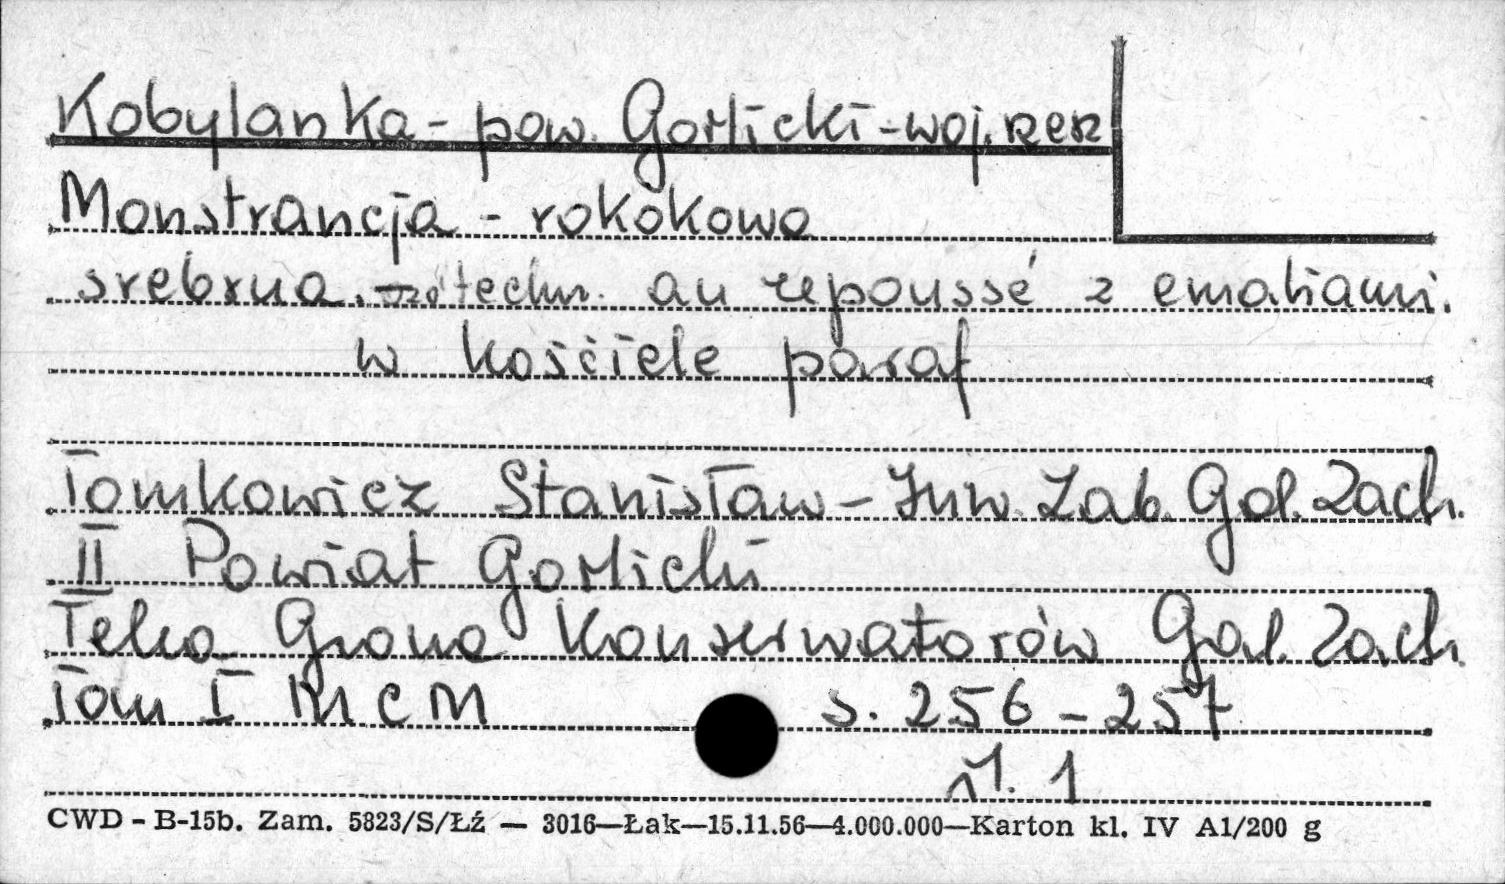 Kobylanka - pow. Gorlicki - woj. rzesz
Monstrancja - rokokowa
srebrna. techn. au repoussé z emaliami.
w kościele paraf
Tomkowicz Stanisław - Inw. Zab. Gal. Zach.
II Powiat Gorlicki
Teka Grona Konserwatorów Gal. Zach.
Tom I MCM s. 256 - 257
il. 1
CWD - B-15b. Zam. 5823/S/Łź — 3016—Łak—15.11.56—4.000.000—Karton kl. IV A1/200 g